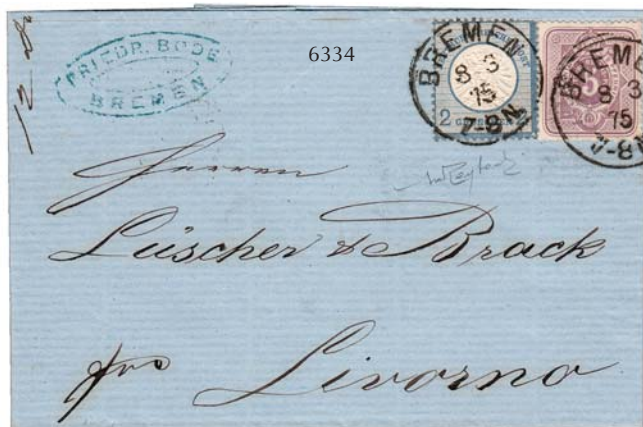 12
FRIEDR. BODE
BREMEN
6334
BREMEN
8 3
75
7-8 N.
2 2
BREMEN
8 3
75
7-8 N
5
Herren
Lüscher & Brack
Livorno